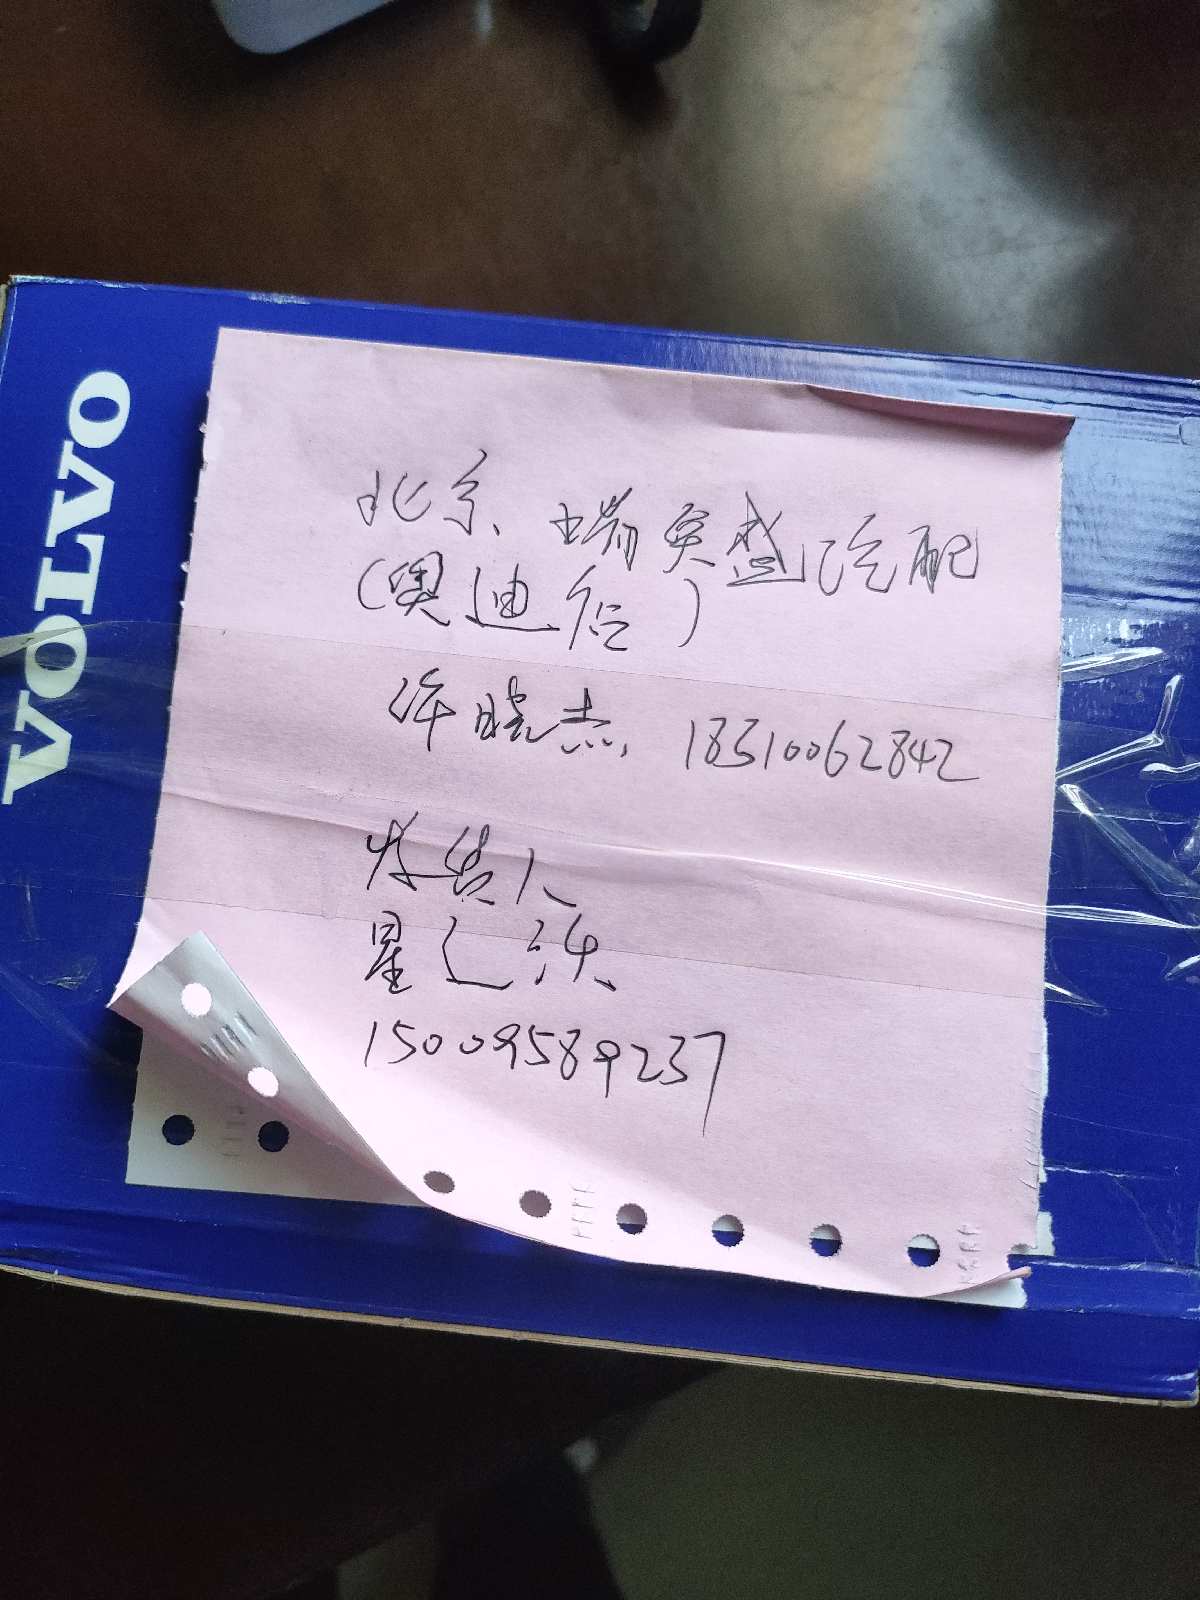 VOLVO
北京、瑞奕盛汽配
(奥迪信)
许晓杰、18510062842
发货人
星之沃、
15009589237